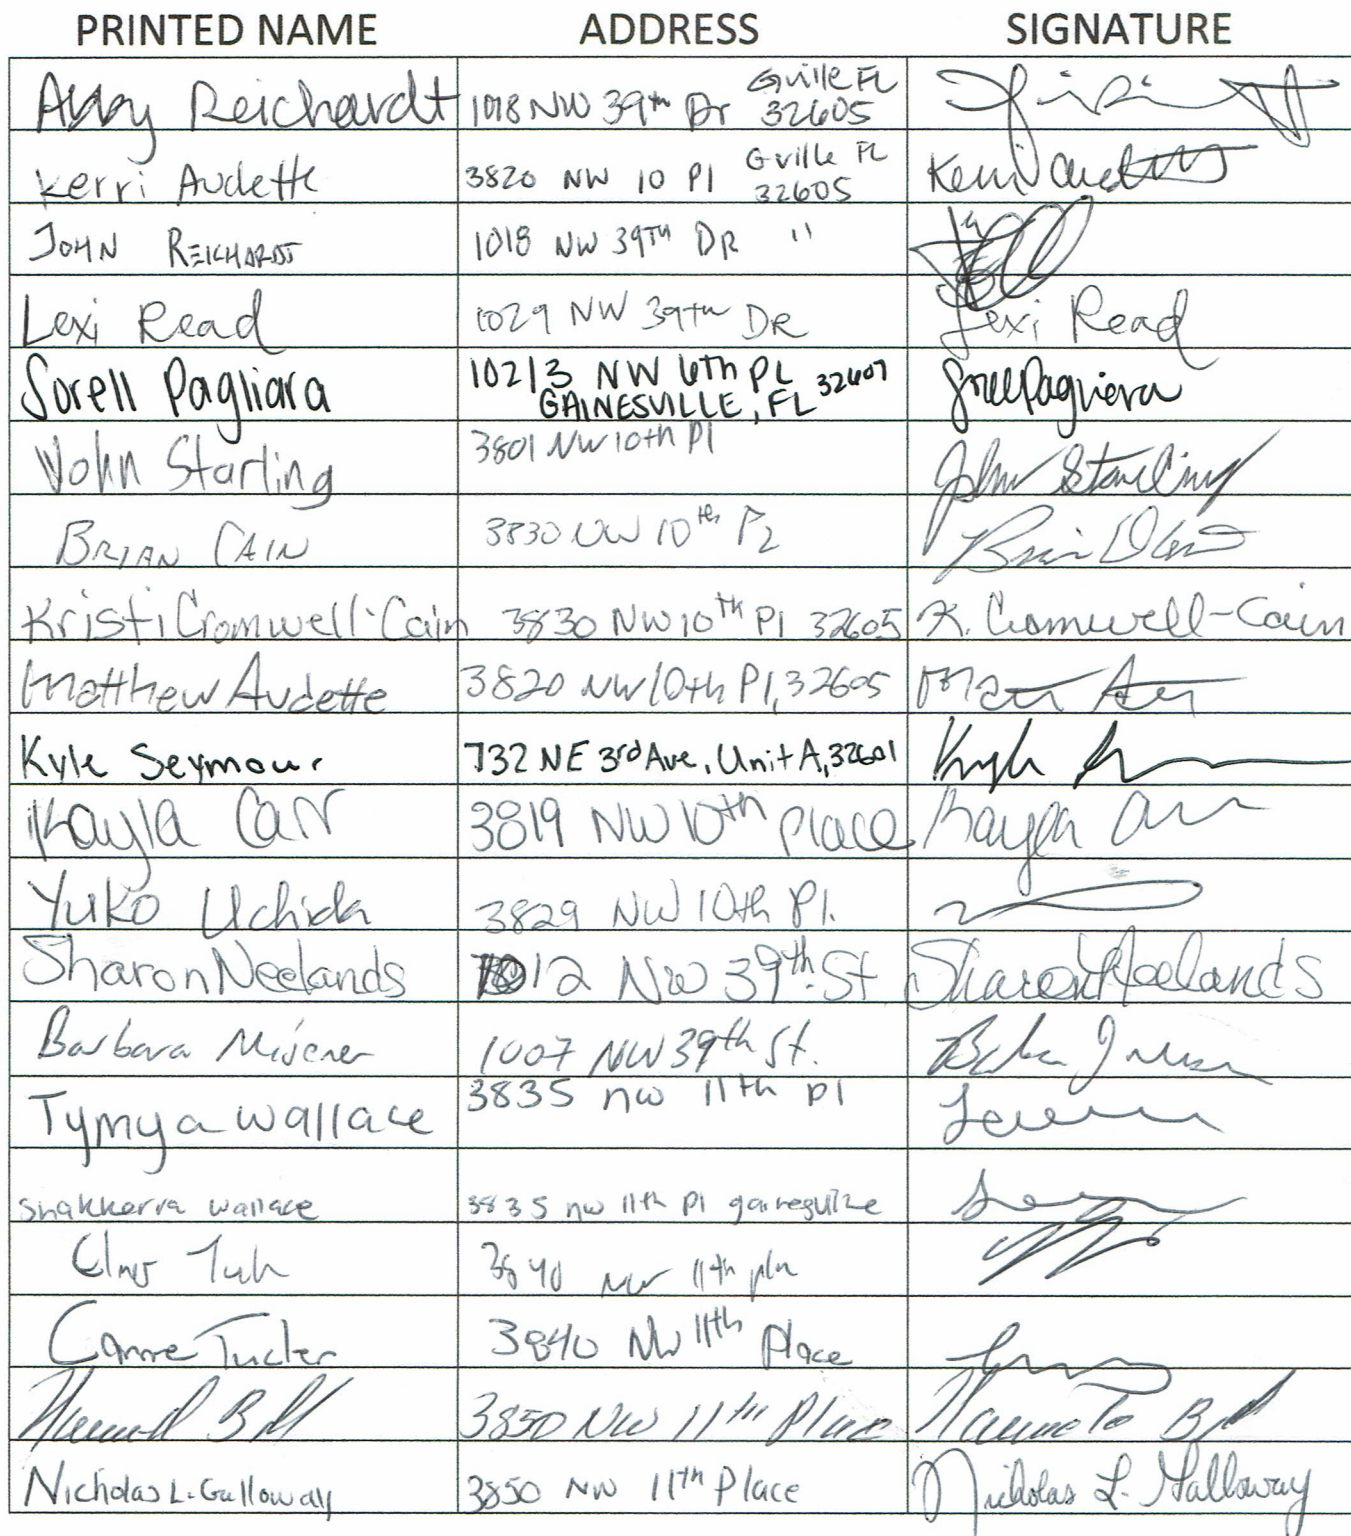 PRINTED NAME ADDRESS SIGNATURE
Abby Reichardt 1018 NW 39th Dr Gville FL 32605
Kerri Audette 3820 NW 10 Pl Gville FL 32605 Kerri Audette
JOHN REICHARDT 1018 NW 39TH DR "
Lexi Read 1029 NW 39th DR Lexi Read
Sorell Pagliara 10213 NW 6th PL GAINESVILLE, FL 32607 Sorell Pagliara
John Starling 3801 NW 10th Pl John Starling
BRIAN CAIN 3830 NW 10th PL
Kristi Cromwell-Cain 3830 NW 10th Pl 32605 K. Cromwell-Cain
Matthew Audette 3820 NW 10th Pl, 32605
Kyle Seymour 732 NE 3rd Ave, Unit A, 32601 Kyle
Kayla Carr 3819 NW 10th place Kayla
Yuko Uchida 3829 NW 10th Pl.
Sharon Neelands 1012 NW 39th St Sharon Neelands
Barbara Misener 1007 NW 39th St.
Tymya wallace 3835 nw 11th pl
Shakkerra wallace 3835 nw 11th Pl
3840 NW 11th
Tucker 3840 NW 11th Place
3850 NW 11TH Place
Nicholas L. Galloway 3850 NW 11th Place Nicholas L. Galloway